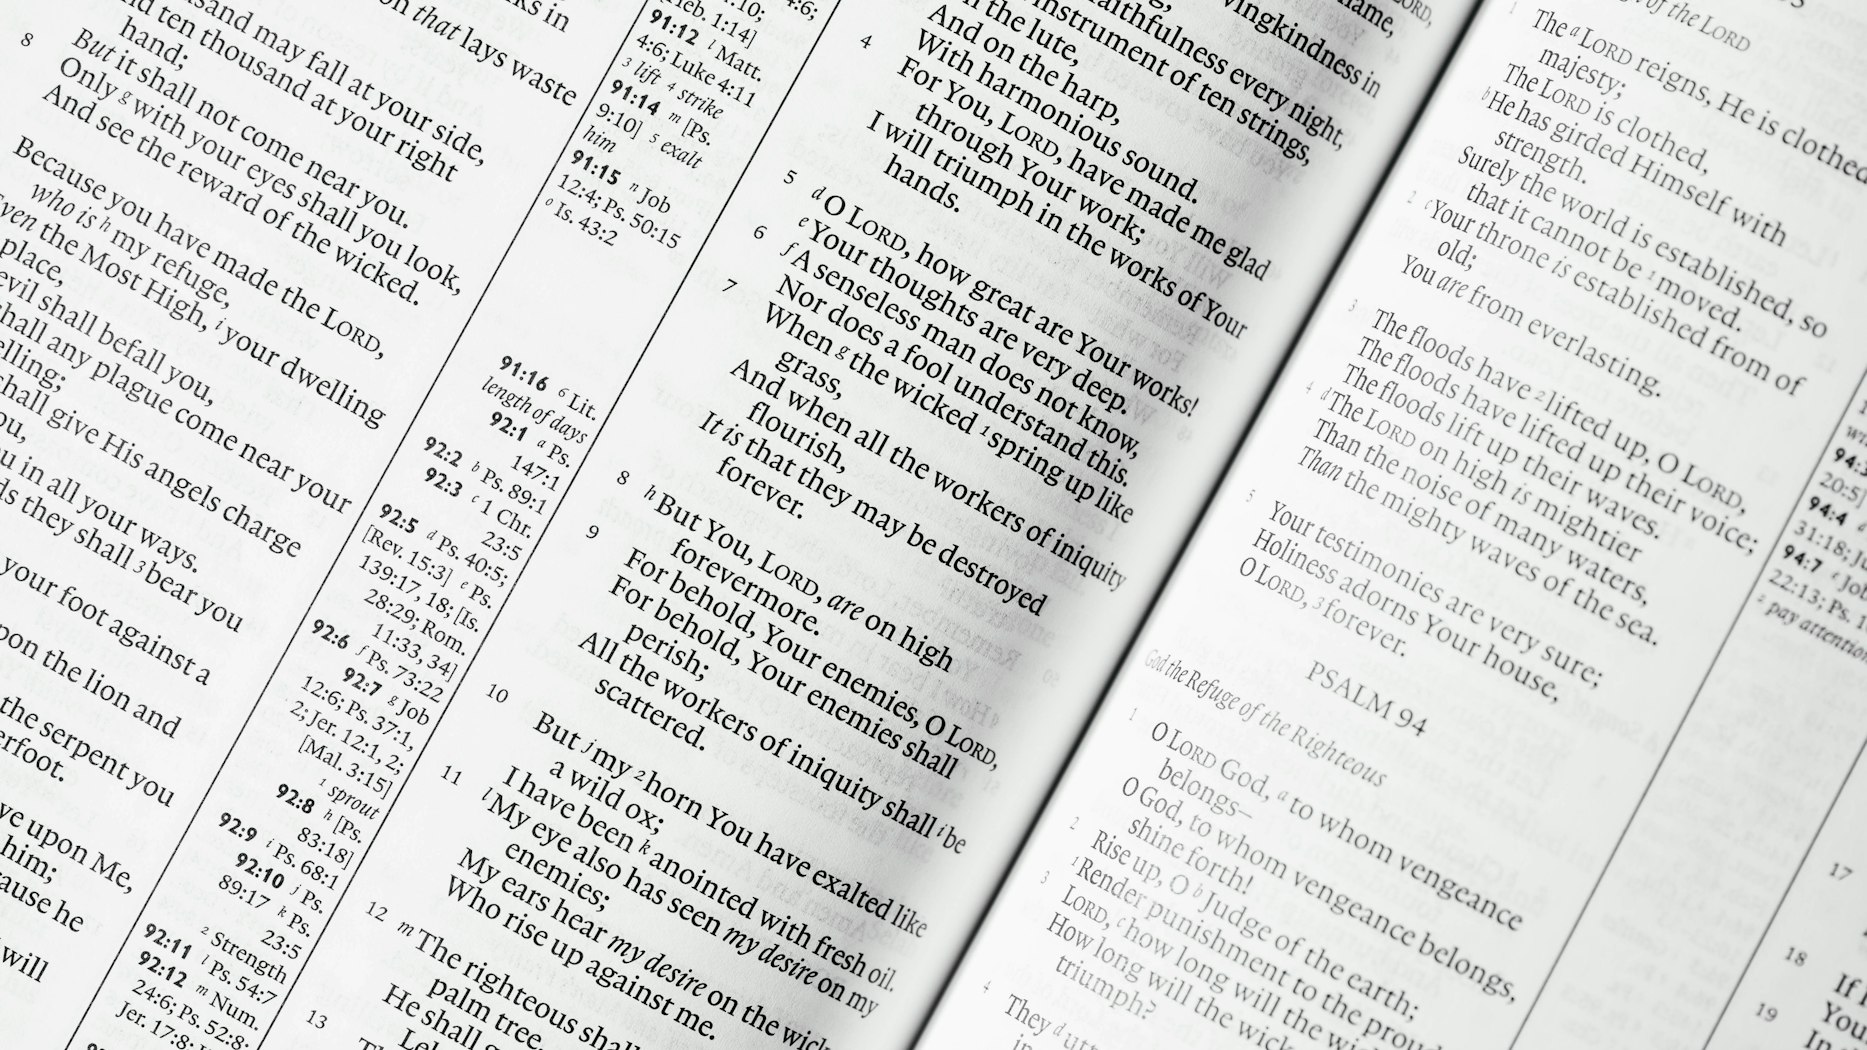 that lays waste
thousand may fall at your side,
ten thousand at your right
hand;
8 But it shall not come near you.
Only g with your eyes shall you look,
And see the reward of the wicked.
Because you have made the LORD,
who is h my refuge,
Even the Most High, i your dwelling
place,
evil shall befall you,
shall any plague come near your
dwelling;
shall give His angels charge
you,
you in all your ways.
they shall 3 bear you
your foot against a
upon the lion and
the serpent you
upon Me,
him;
because he
will
Heb. 1:14]
91:12 l Matt.
4:6; Luke 4:11
3 lift 4 strike
91:14 m [Ps.
9:10] 5 exalt
him
91:15 n Job
12:4; Ps. 50:15
o Is. 43:2
91:16 6 Lit.
length of days
92:1 a Ps.
147:1
92:2 b Ps. 89:1
92:3 c 1 Chr.
23:5
92:5 d Ps. 40:5;
[Rev. 15:3] e Ps.
139:17, 18; [Is.
28:29; Rom.
11:33, 34]
92:6 f Ps. 73:22
92:7 g Job
12:6; Ps. 37:1,
2; Jer. 12:1, 2;
[Mal. 3:15]
1 sprout
92:8 h [Ps.
83:18]
92:9 i Ps. 68:1
92:10 j Ps.
89:17 k Ps.
23:5
2 Strength
92:11 l Ps. 54:7
92:12 m Num.
24:6; Ps. 52:8;
Jer. 17:8;
name,
lovingkindness in
faithfulness every night,
instrument of ten strings,
the lute,
And on the harp,
With harmonious sound.
4 For You, LORD, have made me glad
through Your work;
I will triumph in the works of Your
hands.
5 d O LORD, how great are Your works!
e Your thoughts are very deep.
6 f A senseless man does not know,
Nor does a fool understand this.
7 When g the wicked 1 spring up like
grass,
And when all the workers of iniquity
flourish,
It is that they may be destroyed
forever.
8 h But You, LORD, are on high
forevermore.
9 For behold, Your enemies, O LORD,
For behold, Your enemies shall
perish;
All the workers of iniquity shall i be
scattered.
10 But j my 2 horn You have exalted like
a wild ox;
I have been k anointed with fresh oil.
11 l My eye also has seen my desire on my
enemies;
My ears hear my desire on the
Who rise up against me.
12 m The righteous
palm tree,
He shall
13
of the LORD
1 The a LORD reigns, He is clothed
majesty;
The LORD is clothed,
b He has girded Himself with
strength.
Surely the world is established, so
that it cannot be 1 moved.
2 c Your throne is established from of
old;
You are from everlasting.
3 The floods have 2 lifted up, O LORD,
The floods have lifted up their voice;
The floods lift up their waves.
4 d The LORD on high is mightier
Than the noise of many waters,
Than the mighty waves of the sea.
5 Your testimonies are very sure;
Holiness adorns Your house,
O LORD, 3 forever.
PSALM 94
God the Refuge of the Righteous
1 O LORD God, a to whom vengeance
belongs—
O God, to whom vengeance belongs,
shine forth!
2 Rise up, O b Judge of the earth;
1 Render punishment to the proud
3 LORD, c how long will the
How long will the
triumph?
4 They d
in
20:5]
94:4
31:18;
94:7 e Job
22:13; Ps.
2 pay attention
17
18
19
You